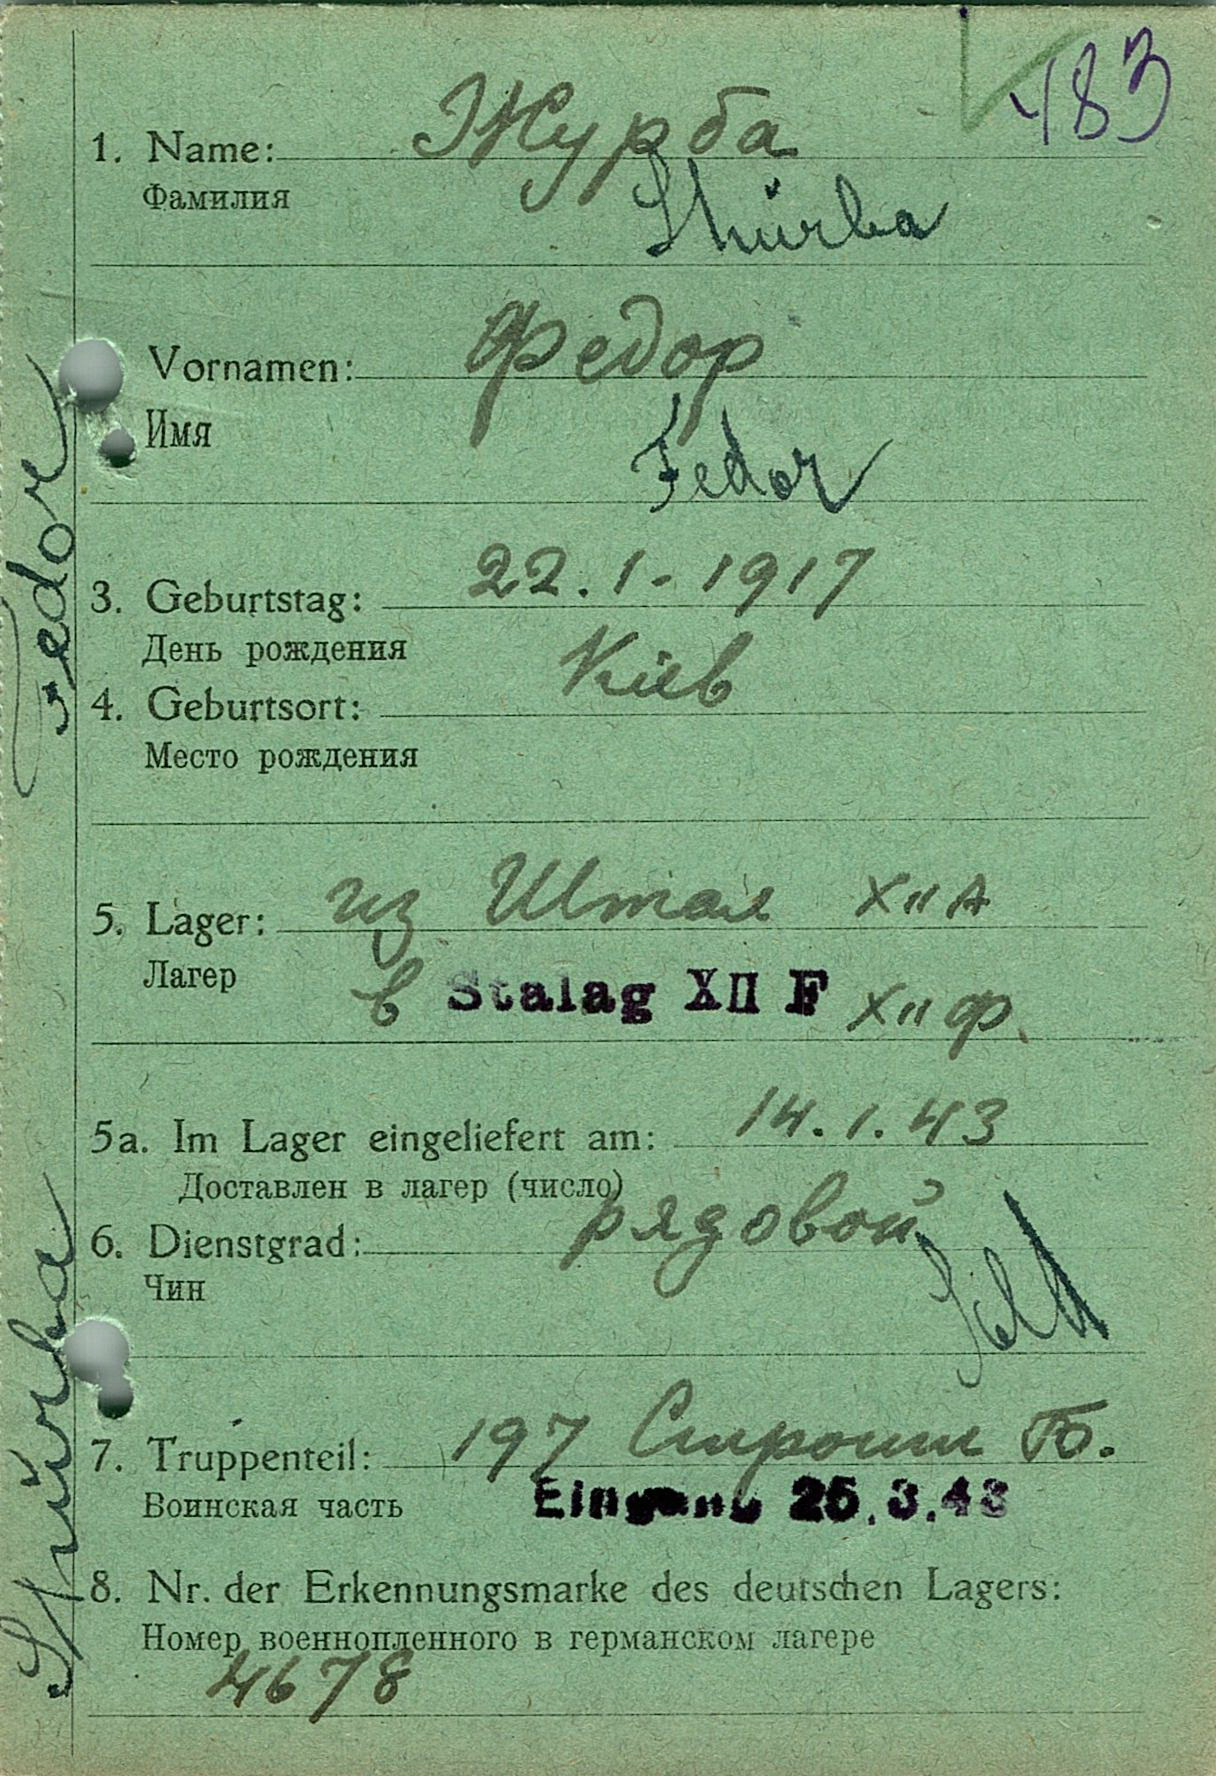 483
1. Name: Журба
Фамилия
Shürba
Vornamen: Федор
Имя
Fedor
3. Geburtstag: 22.1-1917
День рождения
Kiев
4. Geburtsort:
Место рождения
5. Lager: из Штал XIIА
Лагер
в Stalag XII F XIIФ
5a. Im Lager eingeliefert am: 14.1.43
Доставлен в лагер (число)
6. Dienstgrad: рядовой
Чин
Sold
7. Truppenteil: 197 Строит Б.
Воинская часть
Eingang 25.3.43
8. Nr. der Erkennungsmarke des deutschen Lagers:
Номер военнопленного в германском лагере
4678
Shürba Fedor